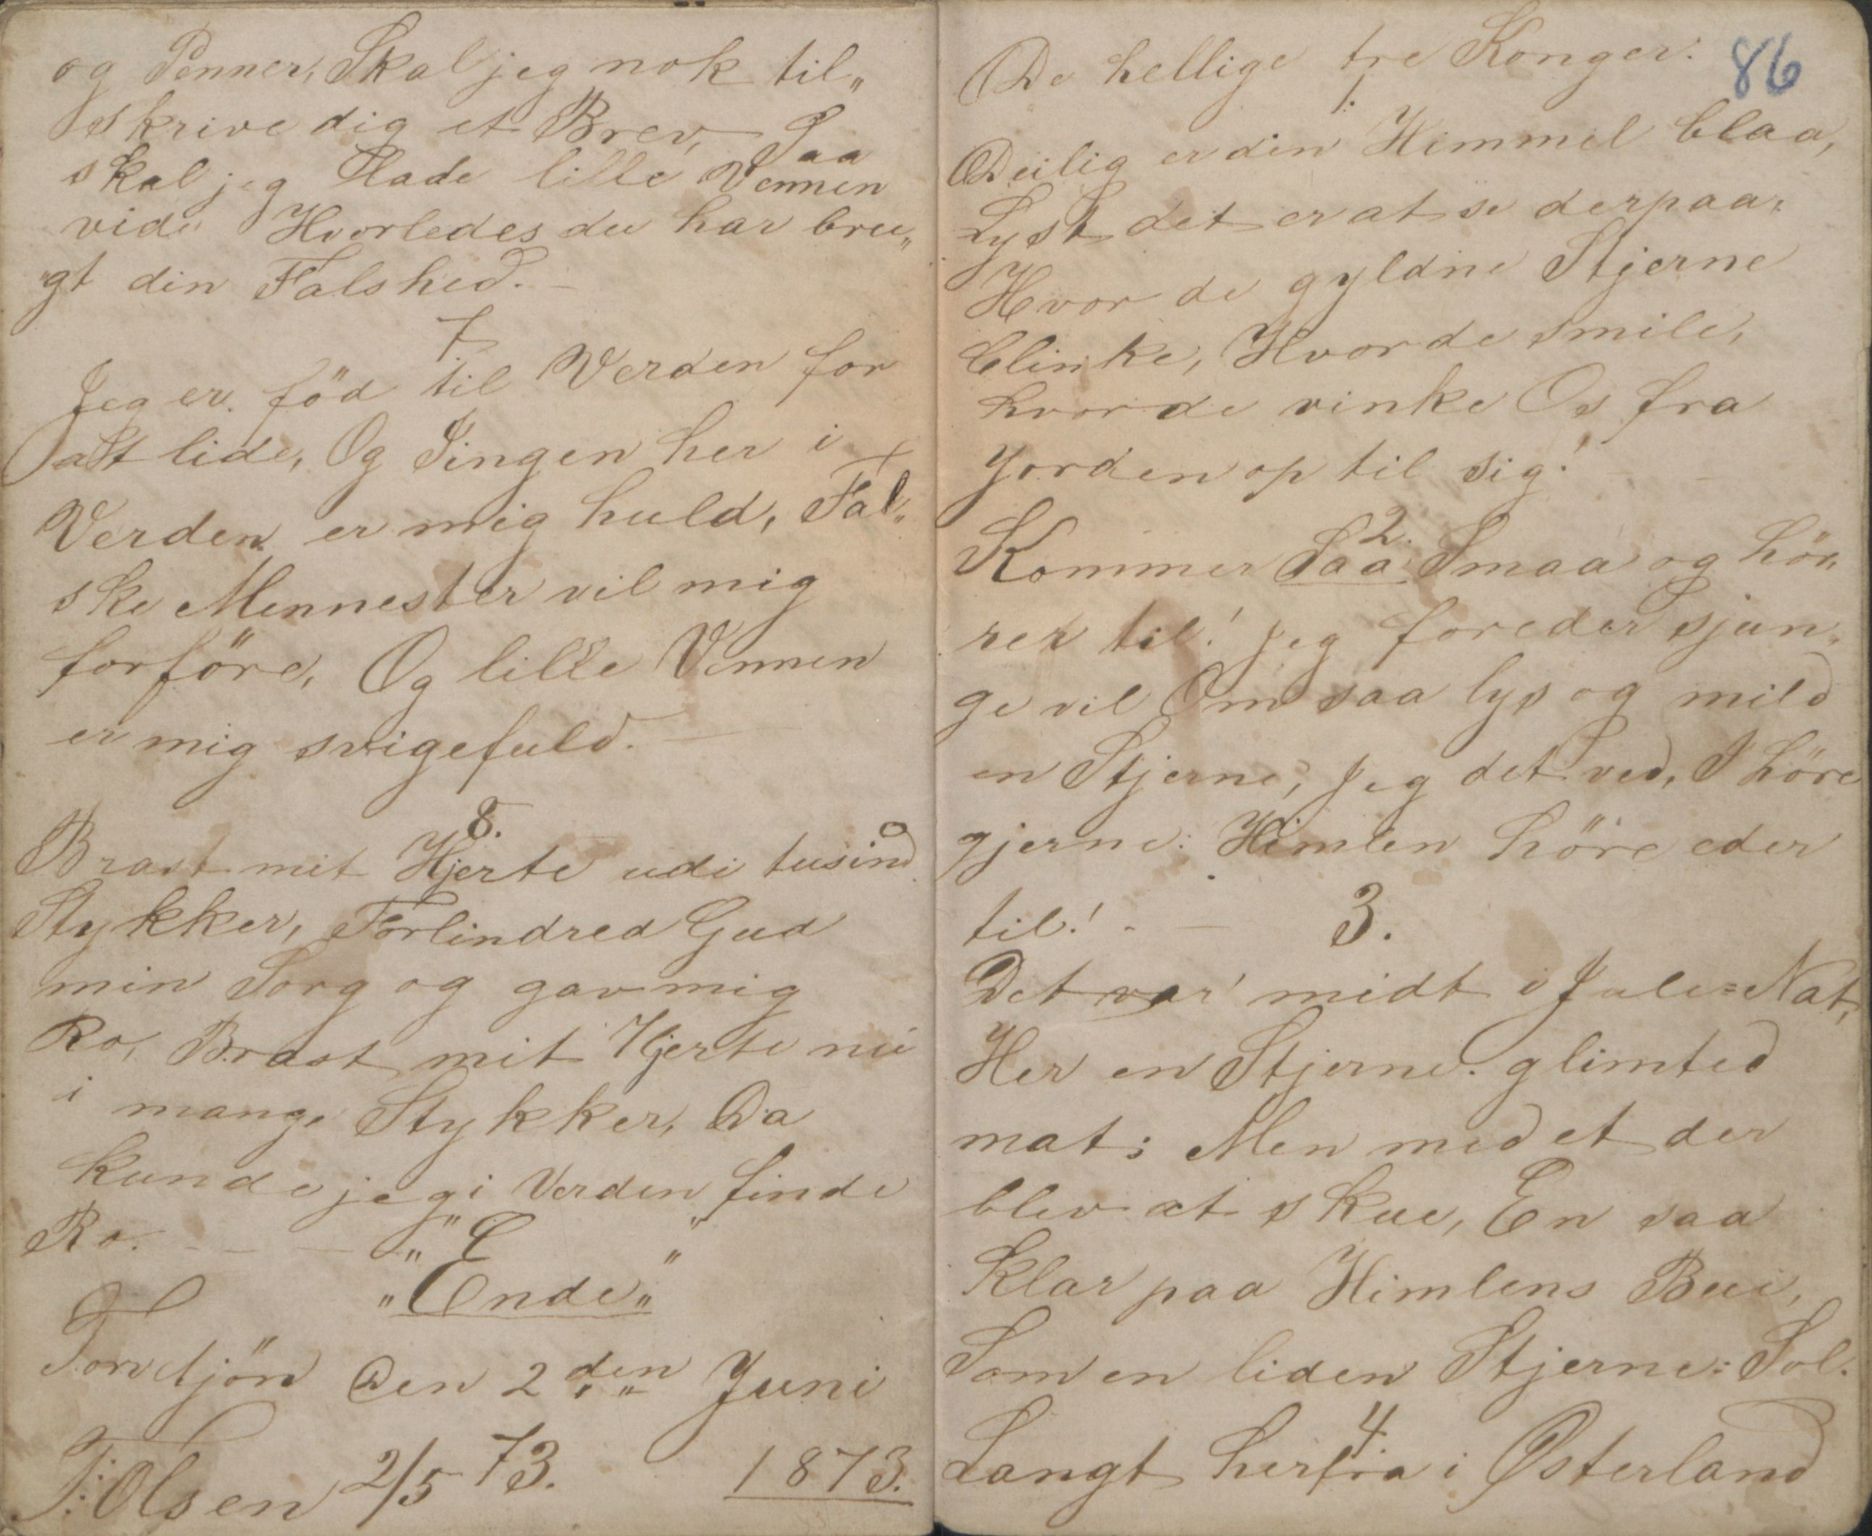 og Penner, Skal jeg nok til„
skrive dig et Brev, Saa
skal jeg lade lille Vennen
vide Hvorledes du har bru„
„gt din Falshed. –
7
Jeg er föd til Verden for
att lide, Og Iingen her i
Verden er mig huld, Fal„
ske Mennester vil mig
forföre, Og lille Vennen
er mig svigefuld. –
8.
Brast mit Hjerte udi tusind
Stykker, Forlindred Gud
min Sorg og gav mig
Ro, Brast mit Hjerte nu
i mange Stykker, Da
kunde jeg i Verden finde
Ro. – – –
„Ende„
Den 2den Juni
T: Olsen 2/5 73. 1873.
86
De hellige tre Konger:
1.
Deilig er din Himmel blaa,
Lyst det er at se derpaa,
Hvor de gyldne Stjerne
blinke, Hvor de smile,
hvor de vinke Os fra
Jorden op til sig! –
2.
Kommer Saa Smaa og hö„
rer til! Jeg for eder sjun„
ge vil Om saa lys og mild
en Stjerne, Jeg det ved, I höre
gjerne: Himlen höre eder
til! – –
3.
Det var midt i Jule=Nat,
Her en Stjerne glimted
mat; Men med et der
blev at skue, En saa
klar paa Himlens Bue,
Som en liden Stjerne: Sol.
4.
Langt herfra i Østerland